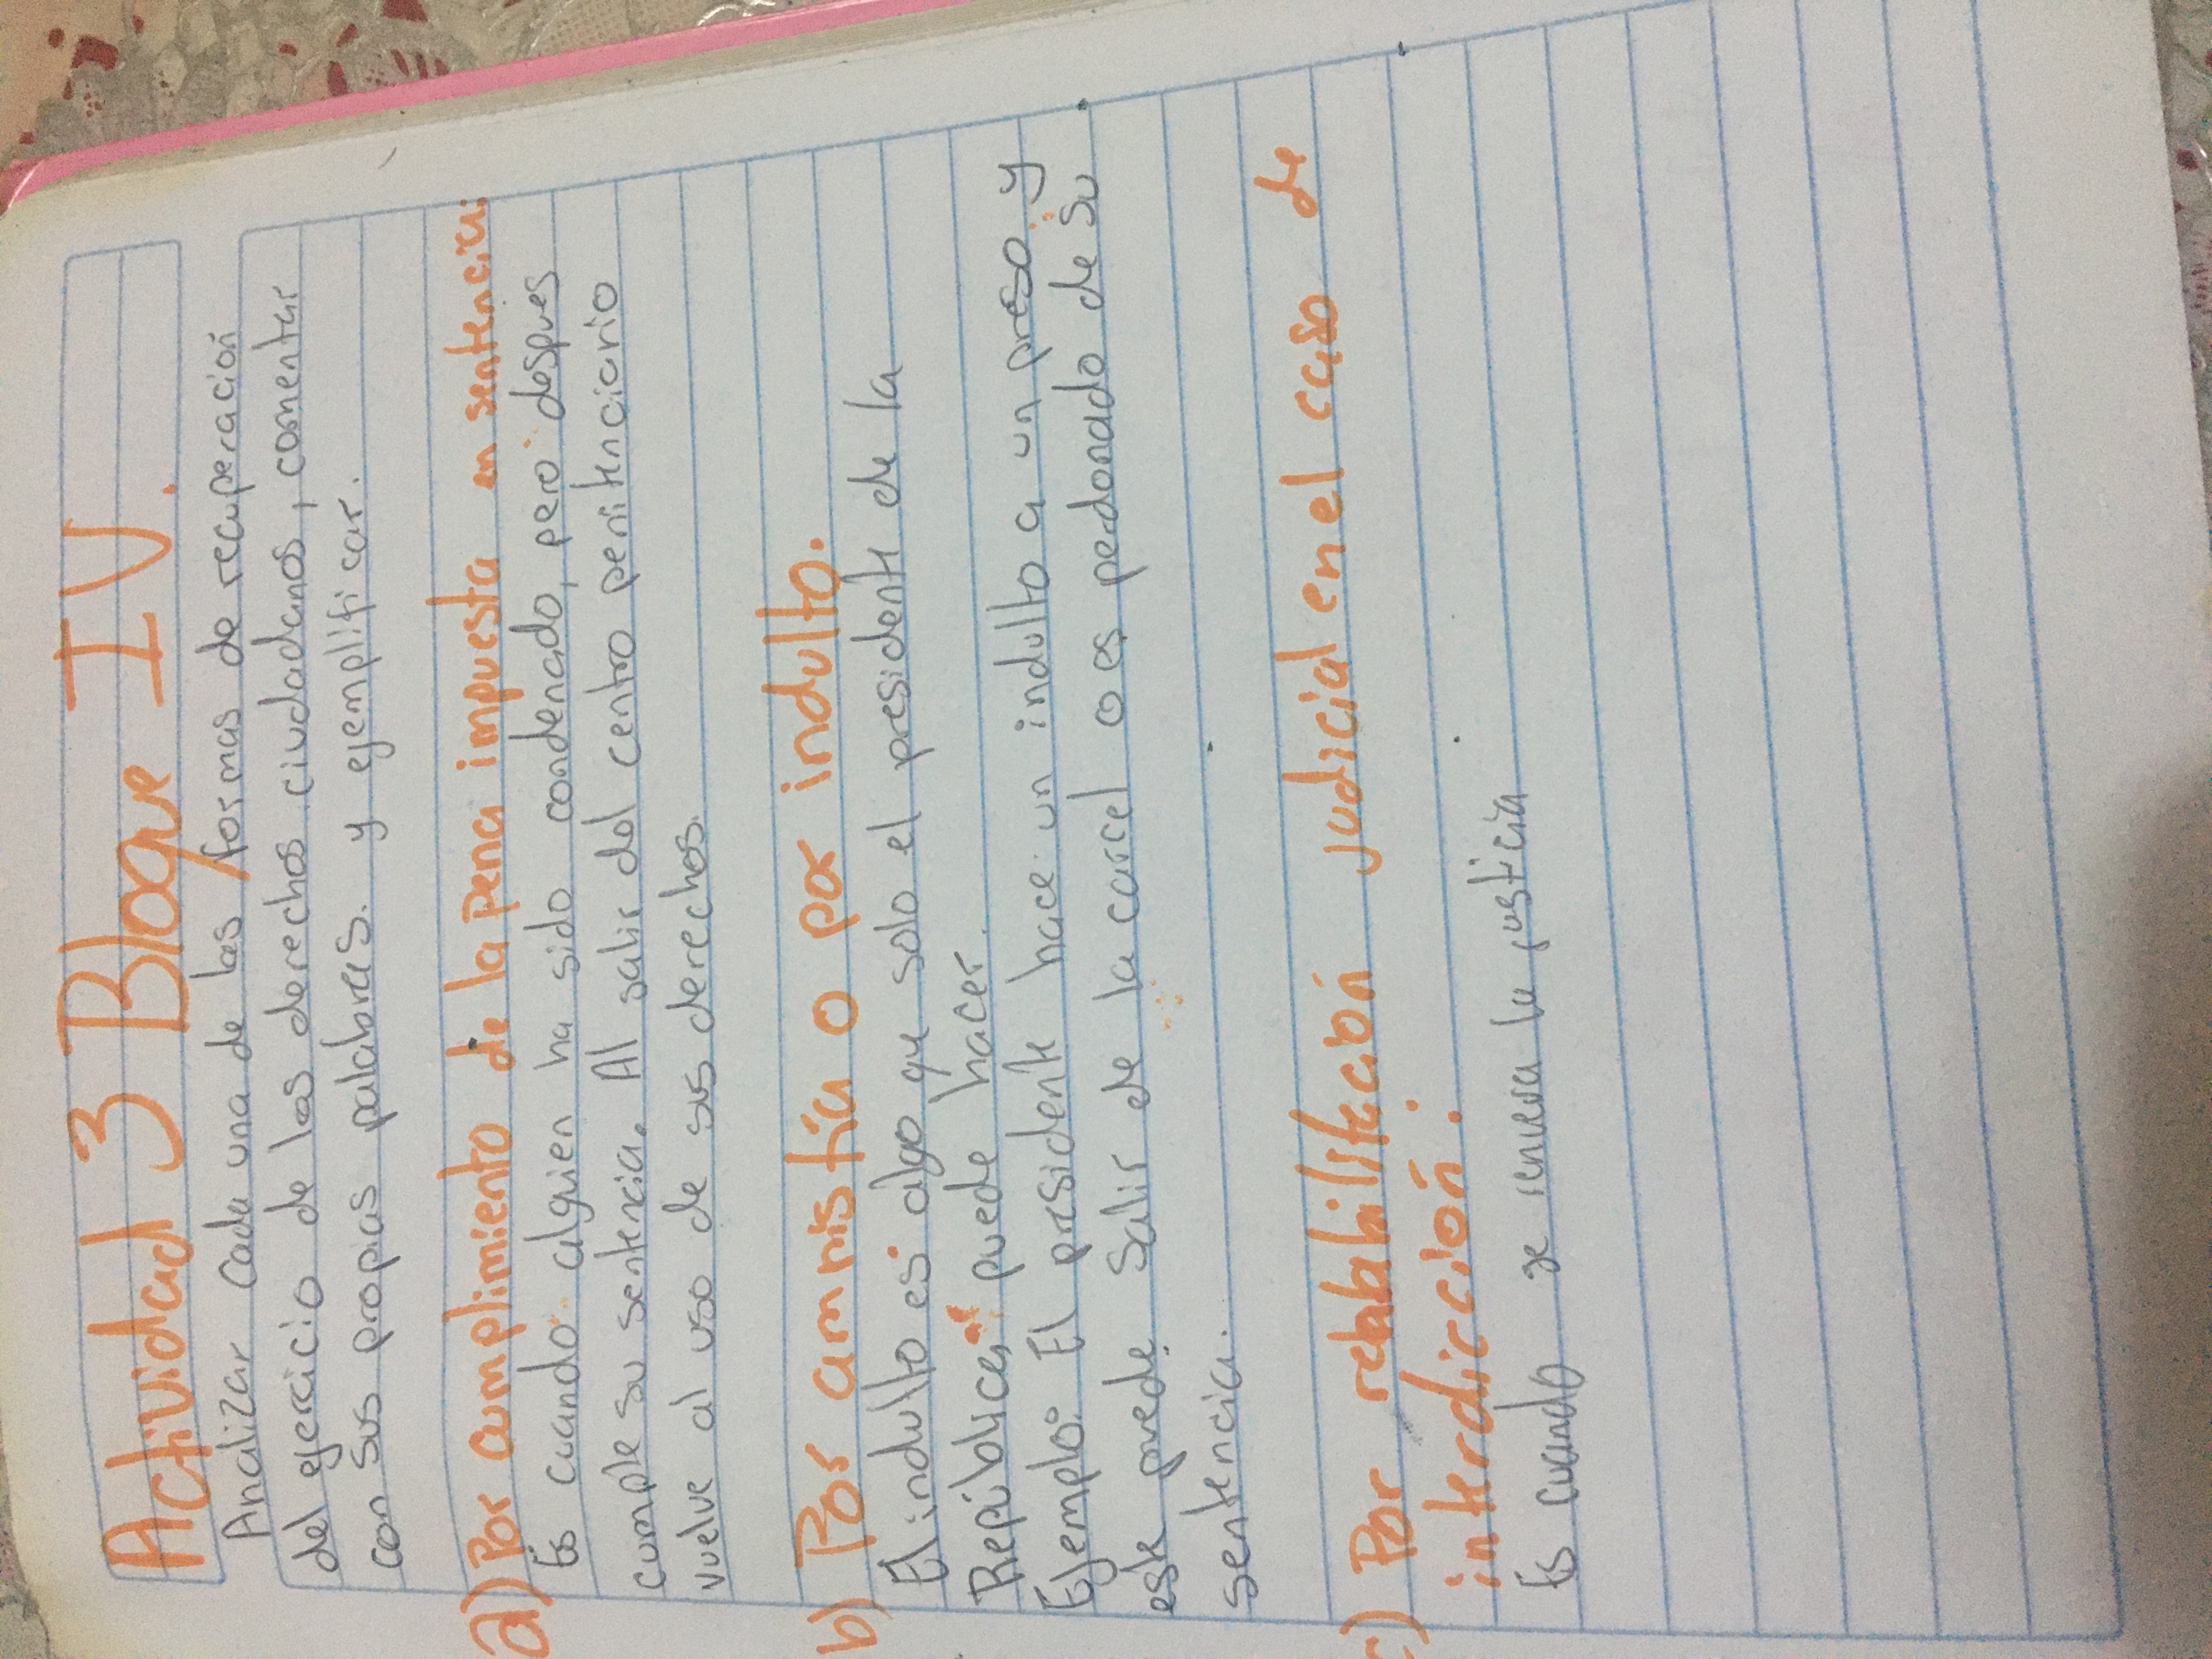 Actividad 3 Bloque IV.
Analizar cada una de las formas de recuperación
del ejercicio de los derechos ciudadanos, comentar
con sus propias palabras. y ejemplificar.
a) Por cumplimiento de la pena impuesta en sentencia:
Es cuando alguien ha sido condenado, pero despues
cumple su sentencia. Al salir del centro penitenciario
vuelve al uso de sus derechos.
b) Por amnistía o por indulto.
El indulto es algo que solo el presidente de la
República puede hacer.
Ejemplo: El presidente hace un indulto a un preso y
este puede salir de la carcel o es perdonado de su
sentencia.
c) Por rehabilitación judicial en el caso de
interdicción:
Es cuando se renueva la justicia